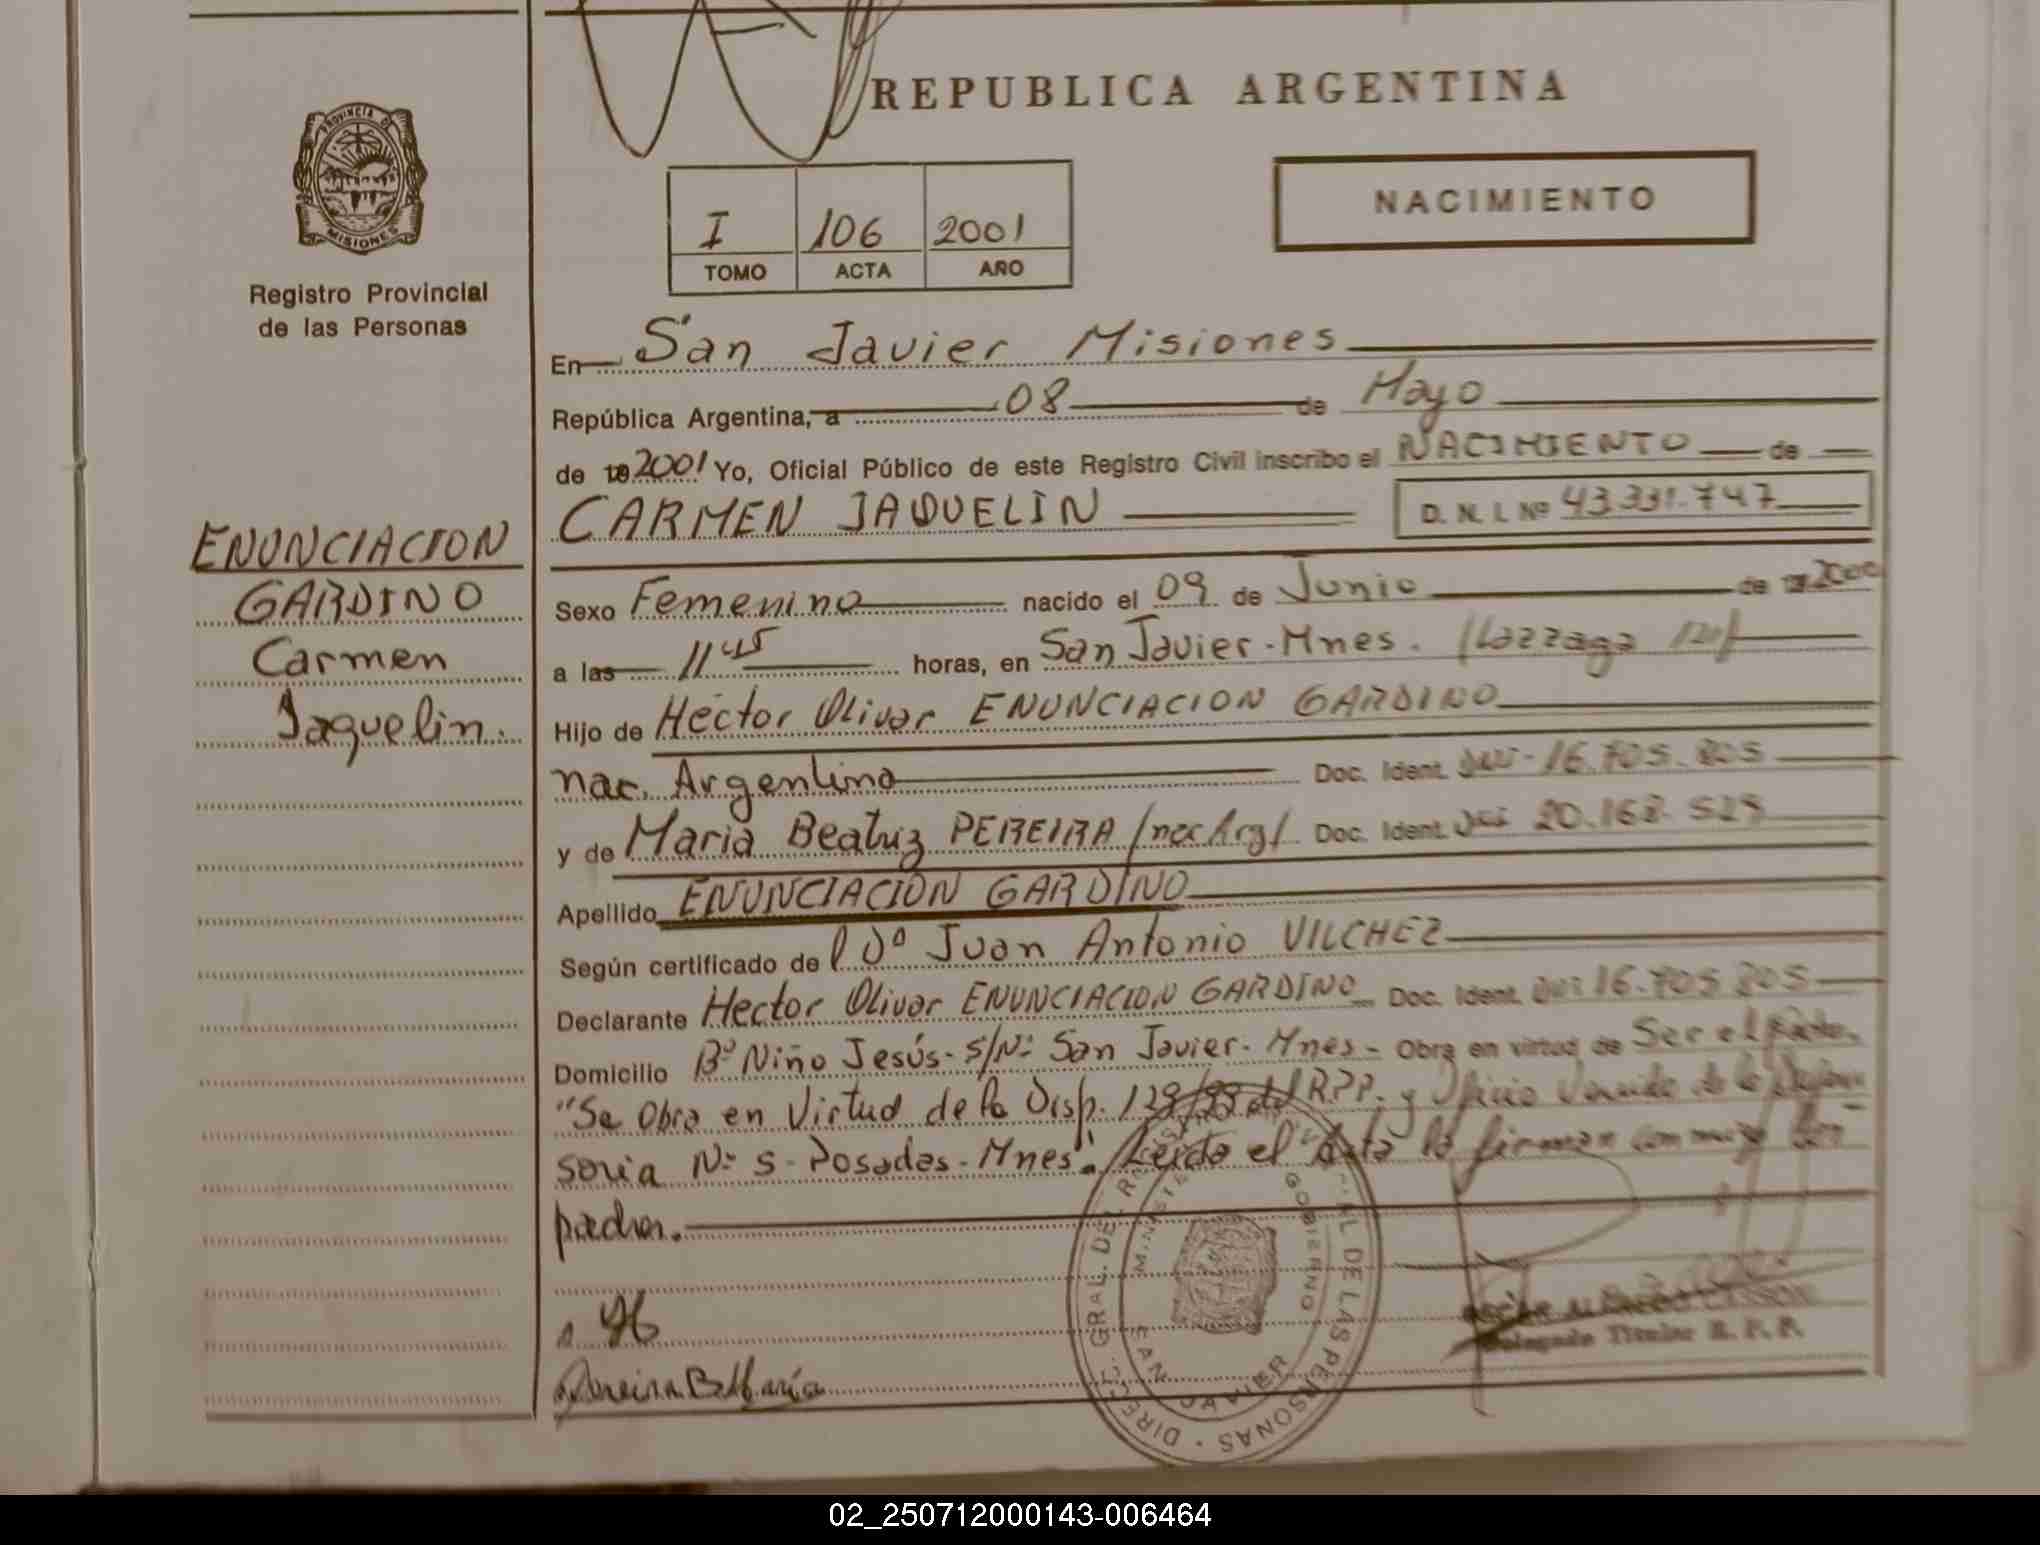 REPUBLICA ARGENTINA
PROVINCIA DE
MISIONES
Registro Provincial
de las Personas
NACIMIENTO
I 106 2001
TOMO ACTA AÑO
En San Javier Misiones
República Argentina, a 08 de Mayo
de 19 2001 Yo, Oficial Público de este Registro Civil inscribo el NACIMIENTO de
CARMEN JAQUELIN D. N. I. Nº 43.331.747
ENUNCIACION
GARDINO
Carmen
Jaquelin.
Sexo Femenino nacido el 09 de Junio de 2000
a las 11 45 horas, en San Javier - Mnes.
Hijo de Hector Olivar ENUNCIACION GARDINO
nac. Argentino Doc. Ident. DNI - 16.705.805
y de Maria Beatriz PEREIRA /nac Arg/ Doc. Ident. DNI 20.168.529
Apellido ENUNCIACION GARDINO
Según certificado de l Dº Juan Antonio VILCHEZ
Declarante Hector Olivar ENUNCIACION GARDINO Doc. Ident. DNI 16.705.805
Domicilio Bº Niño Jesús - S/Nº San Javier - Mnes - Obra en virtud de Ser el padre.
"Se Obra en Virtud de la Disp. 128/99 del R.P.P. y Oficio de la
soria Nº 5 - Posadas - Mnes". Leida el Acta la firman conmigo
padres.
Pereira B María
DIREC. GRAL. DEL REGISTRO DE LAS PERSONAS
MINISTE GOBIERNO
SAN JAVIER
Delegado Titular R. P. P.
02_250712000143-006464